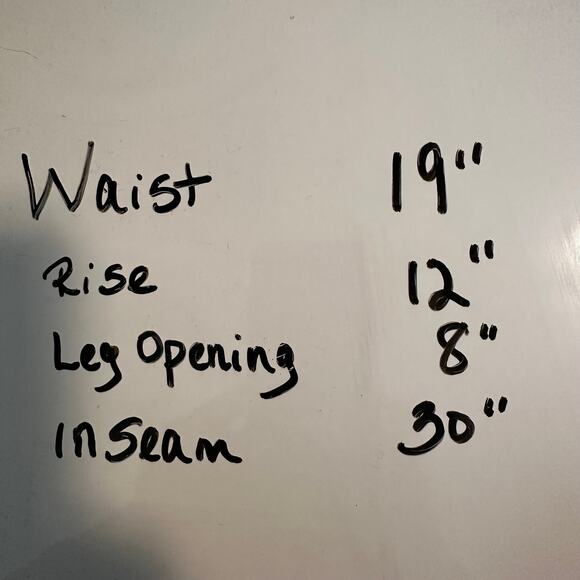 Waist 19"
Rise 12"
Leg Opening 8"
inseam 30"